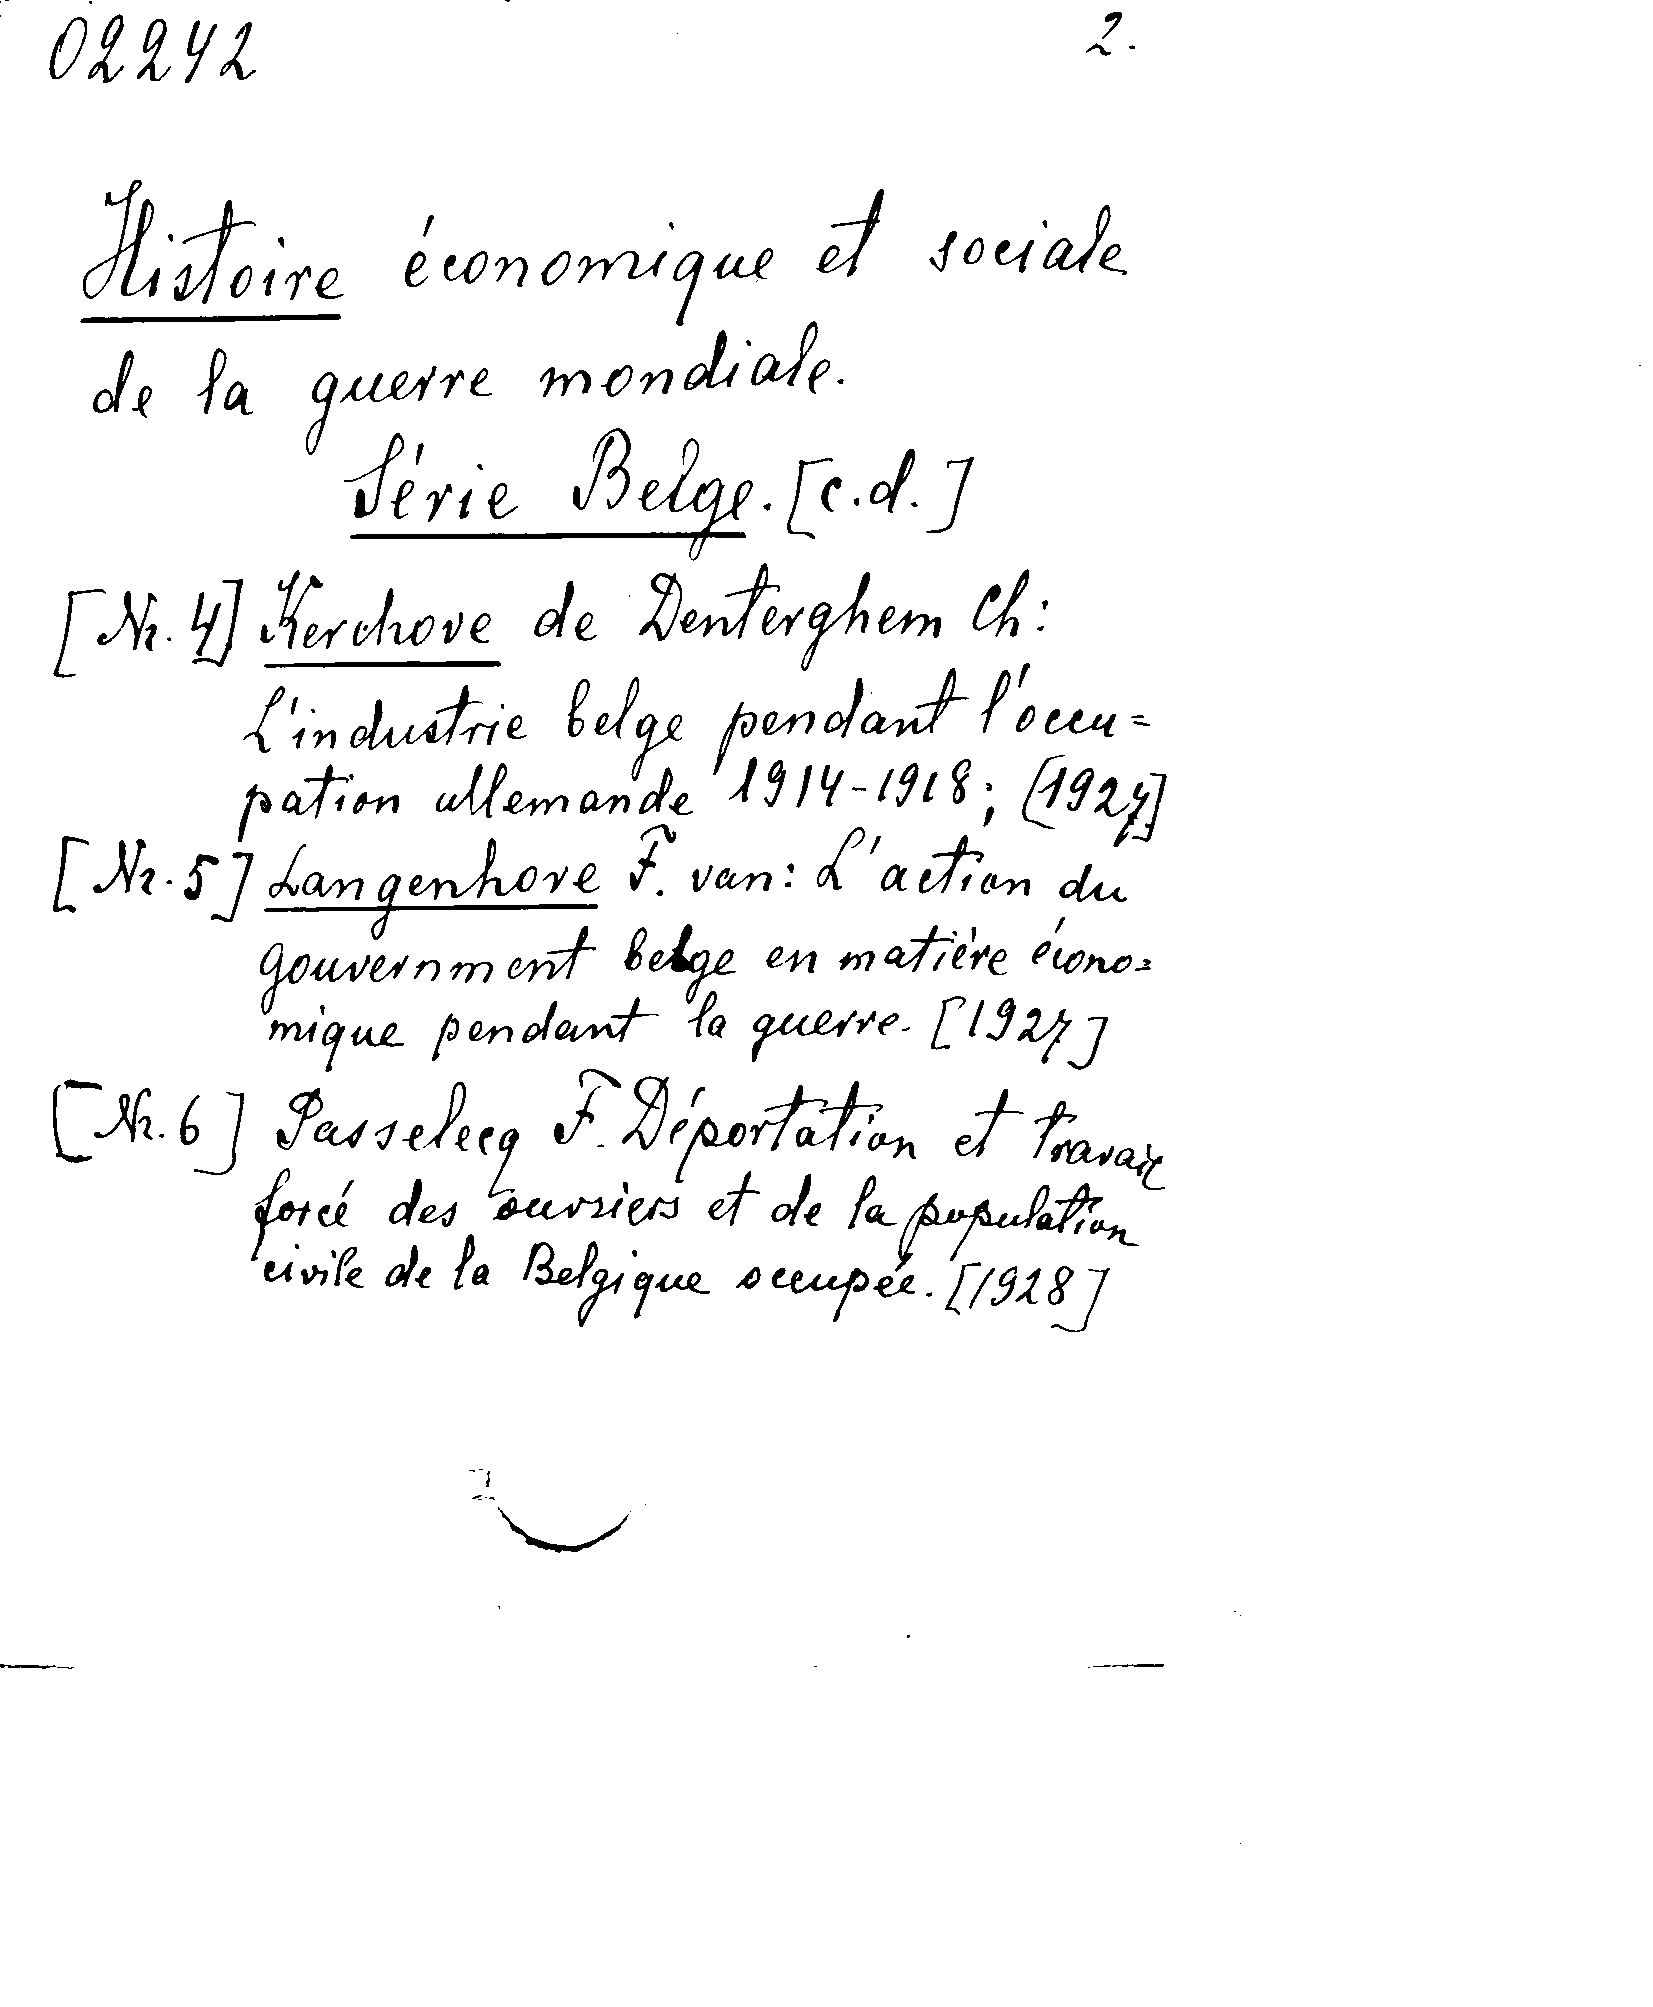 02242
2.
Histoire économique et sociale
de la guerre mondiale.
Série Belge. [c.d.]
[Nr. 4] Kerchove de Denterghem Ch:
L'industrie belge pendant l'occu=
pation allemande 1914-1918; [1927]
[Nr. 5] Langenhove F. van: L'action du
gouvernment belge en matière écono=
mique pendant la guerre. [1927]
[Nr. 6] Passelecq F. Déportation et travail
forcé des ouvriers et de la population
civile de la Belgique occupée. [1928]